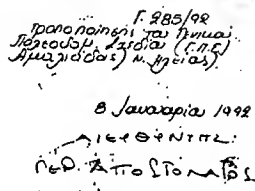 Γ. 285/92
Τροποποίησης του Γενικού
Πολεοδομ. Σχεδίου (Γ.Π.Σ)
Αμαλιάδας) Ν. Ηλείας)
8 Ιανουαρίου 1992
ΔΙΕΥΘΥΝΤΗΣ: